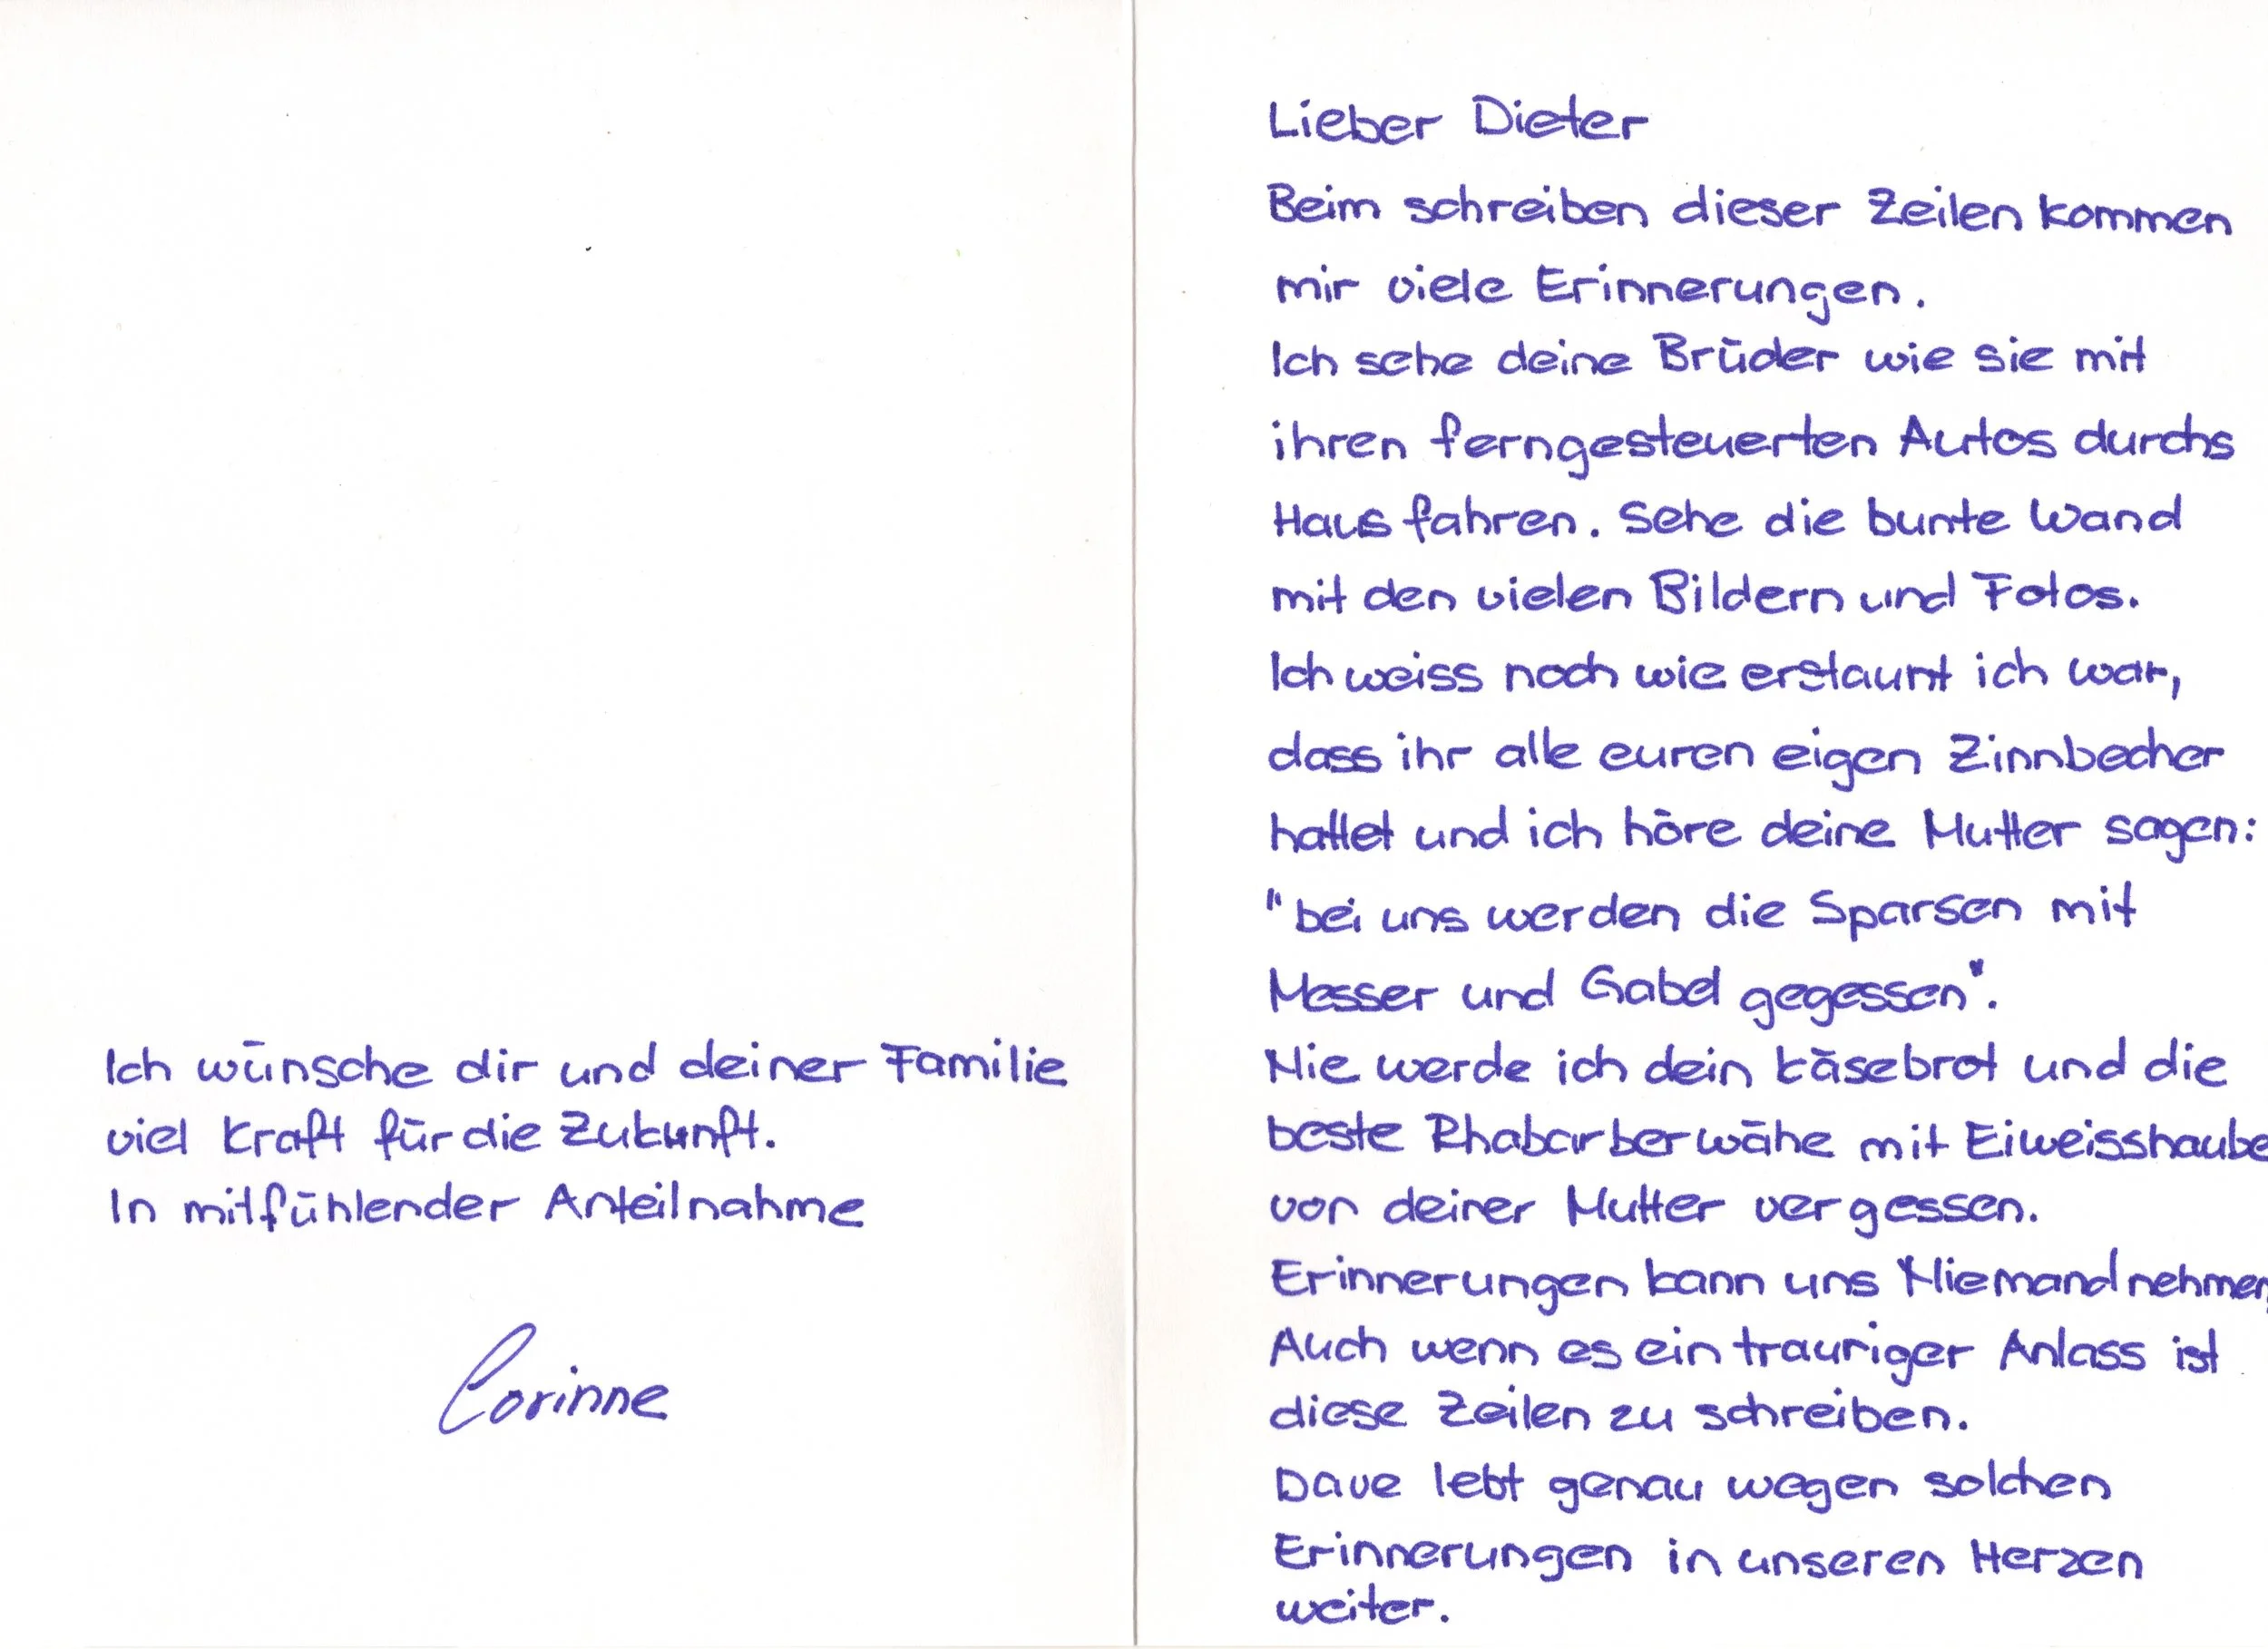 Lieber Dieter
Beim schreiben dieser Zeilen kommen
mir viele Erinnerungen.
Ich sehe deine Brüder wie sie mit
ihren ferngesteuerten Autos durchs
Haus fahren. Sehe die bunte Wand
mit den vielen Bildern und Fotos.
Ich weiss noch wie erstaunt ich war,
dass ihr alle euren eigen Zinnbecher
hattet und ich höre deine Mutter sagen:
"bei uns werden die Sparsen mit
Messer und Gabel gegessen".
Nie werde ich dein Käsebrot und die
beste Rhabarberwähe mit Eiweisshaube
von deiner Mutter vergessen.
Erinnerungen kann uns Niemand nehmen,
Auch wenn es ein trauriger Anlass ist
diese Zeilen zu schreiben.
Dave lebt genau wegen solchen
Erinnerungen in unseren Herzen
weiter.
Ich wünsche dir und deiner Familie
viel Kraft für die Zukunft.
In mitfühlender Anteilnahme
Corinne